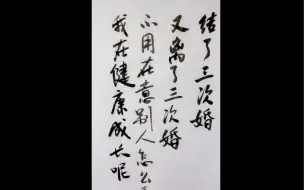 结了三次婚
又离了三次婚
不用在意别人怎么
我在健康成长呢